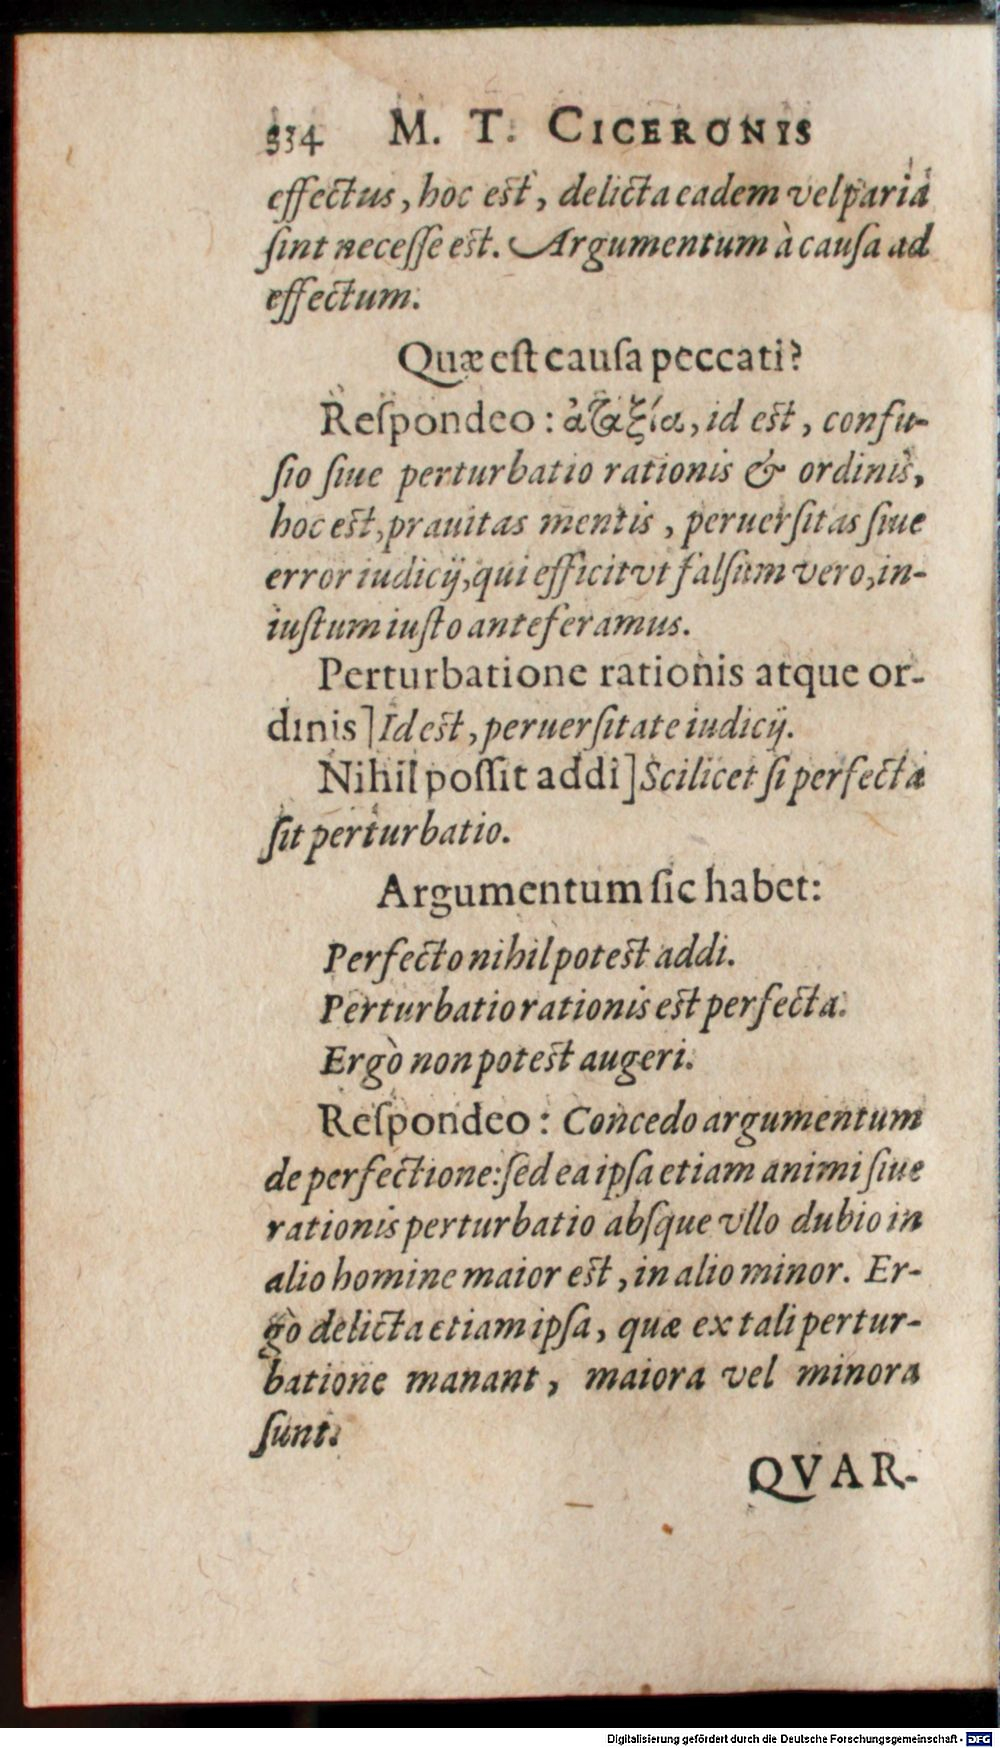 334 M. T. CICERONIS
effectus, hoc est, delicta eadem vel paria
ſint neceſſe est. Argumentum à cauſa ad
effectum.
Quæ eſt cauſa peccati?
Reſpondeo: ἀταξία, id est, confu-
ſio ſiue perturbatio rationis & ordinis,
hoc est, prauitas mentis, peruerſitas ſiue
error iudicij, qui efficit vt falſum vero, in-
iuſtum iuſto anteferamus.
Perturbatione rationis atque or-
dinis] Id est, peruerſitate iudicij.
Nihil poſſit addi] Scilicet ſi perfecta
ſit perturbatio.
Argumentum ſic habet:
Perfecto nihil potest addi.
Perturbatio rationis est perfecta.
Ergò non potest augeri.
Reſpondeo: Concedo argumentum
de perfectione: ſed ea ipſa etiam animi ſiue
rationis perturbatio abſque vllo dubio in
alio homine maior est, in alio minor. Er-
gò delicta etiam ipſa, quæ ex tali pertur-
batione manant, maiora vel minora
ſunt.
QVAR-
Digitalisierung gefördert durch die Deutsche Forschungsgemeinschaft - DFG